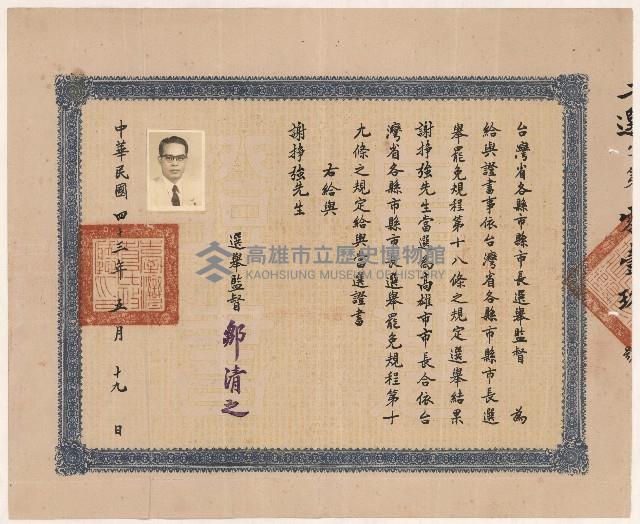 台灣省各縣市縣市長選舉監督　為
給與證書事依台灣省各縣市縣市長選
舉罷免規程第十八條之規定選舉結果
謝掙強先生當選為高雄市市長合依台
灣省各縣市縣市長選舉罷免規程第十
九條之規定給與當選證書
右給與
謝掙強先生
選舉監督
鄒清之
中華民國四十三年五月十九日
高雄市立歷史博物館
KAOHSIUNG MUSEUM OF HISTORY